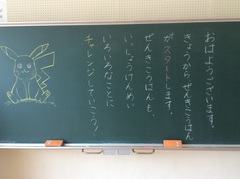 おはようございます。
きょうから ぜんきこうはん
が スタートします。
ぜんきこうはんも
いっしょうけんめい
いろいろなことに
チャレンジしていこう！